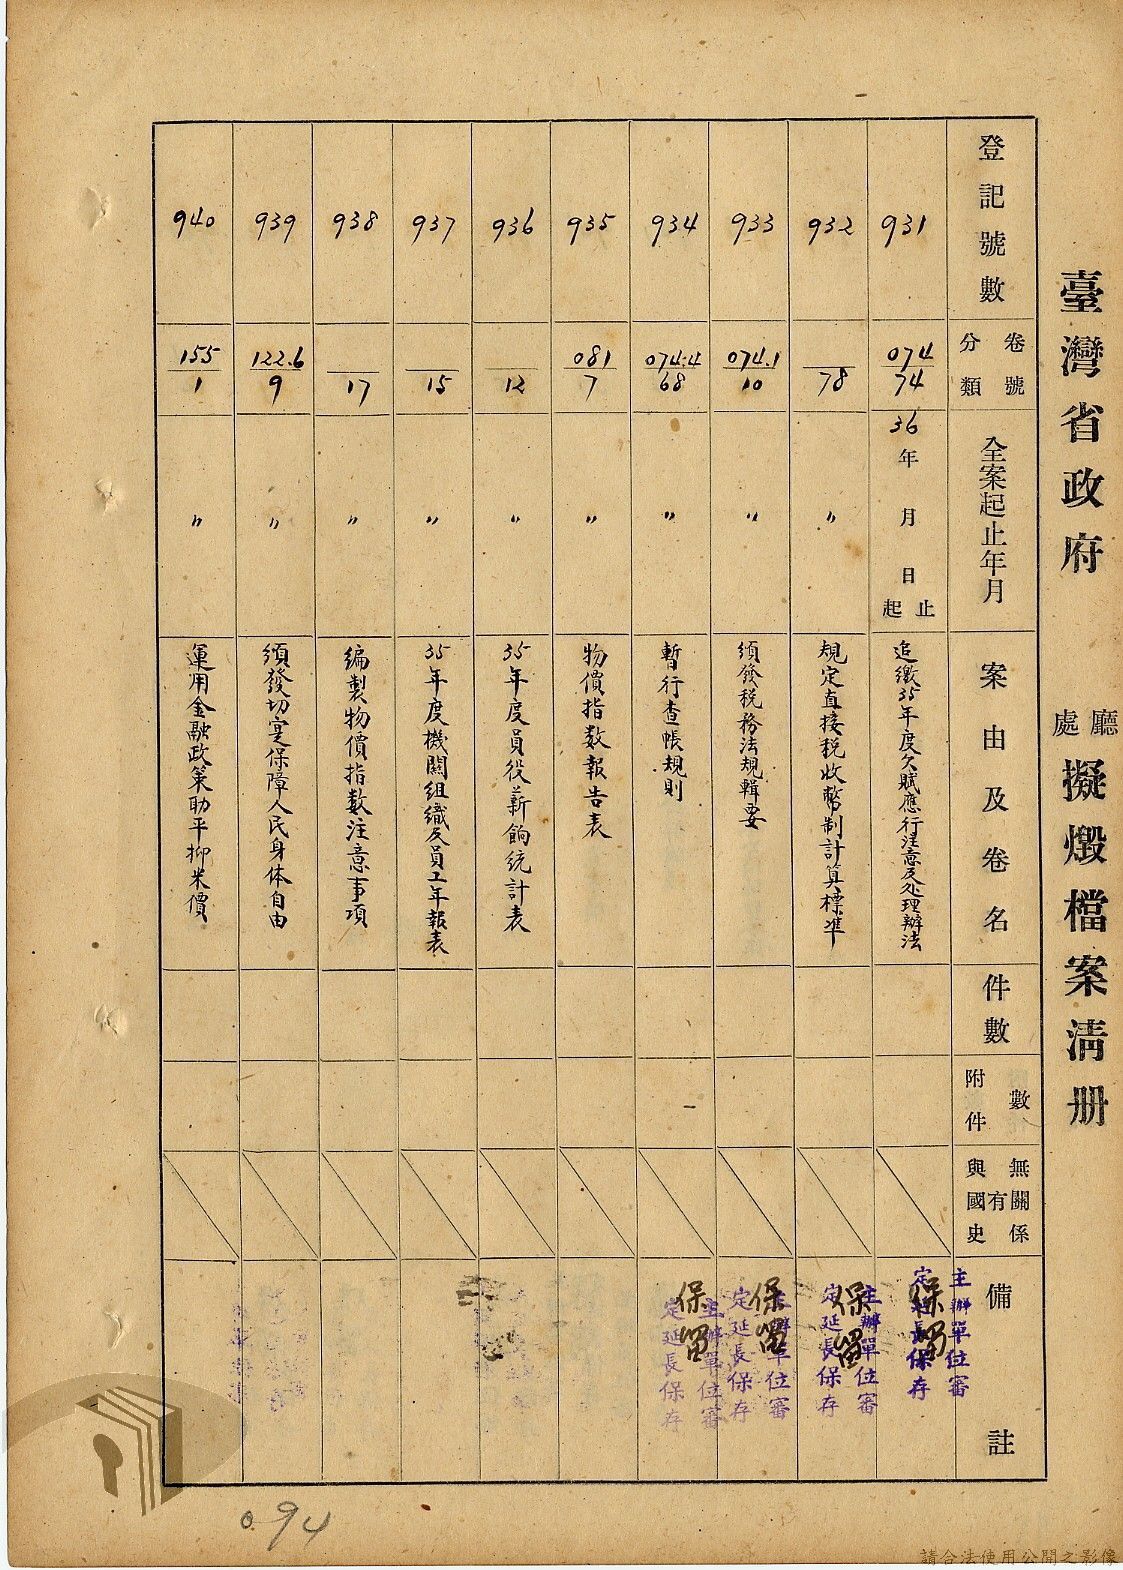 臺灣省政府 廳處 擬燬檔案清册
登記號數
卷號
分類
全案起止年月
案由及卷名
件數
附件數
無有關係
與國史
備註
931
074
74
36年 月 日起止
追繳35年度欠賦應行注意及处理辦法
保留
主辦單位審
定延長保存
932
78
〃
規定直接税收幣制計算標準
保留
主辦單位審
定延長保存
933
074.1
10
〃
頒發税務法規輯要
保留
主辦單位審
定延長保存
934
074.4
68
〃
暫行查帳規則
保留
主辦單位審
定延長保存
935
081
7
〃
物價指数報告表
936
12
〃
35年度員役薪餉統計表
937
15
〃
35年度機關組織及員工年報表
938
17
〃
編製物價指数注意事項
939
122.6
9
〃
頒發切寔保障人民身体自由
940
155
1
〃
運用金融政策助平抑米價
094
請合法使用公開之影像